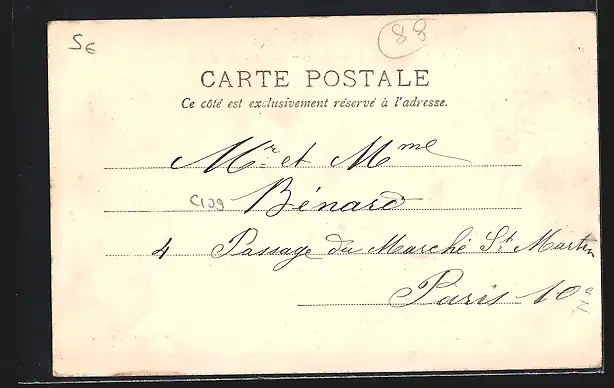 5€
88
CARTE POSTALE
Ce côté est exclusivement réservé à l'adresse.
Mr et Mme
Bénard
4 Passage du Marché St Martin
Paris 10e